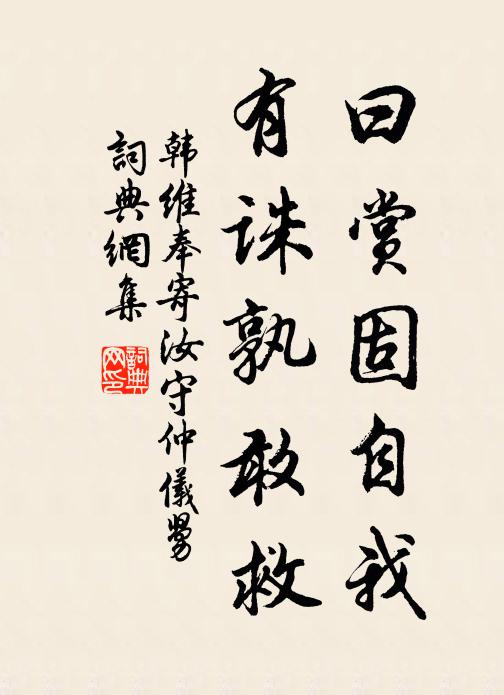 曰賞固自我
有誅孰敢救
韩維奉寄汝守仲儀舅
詞典網集
詞典网印